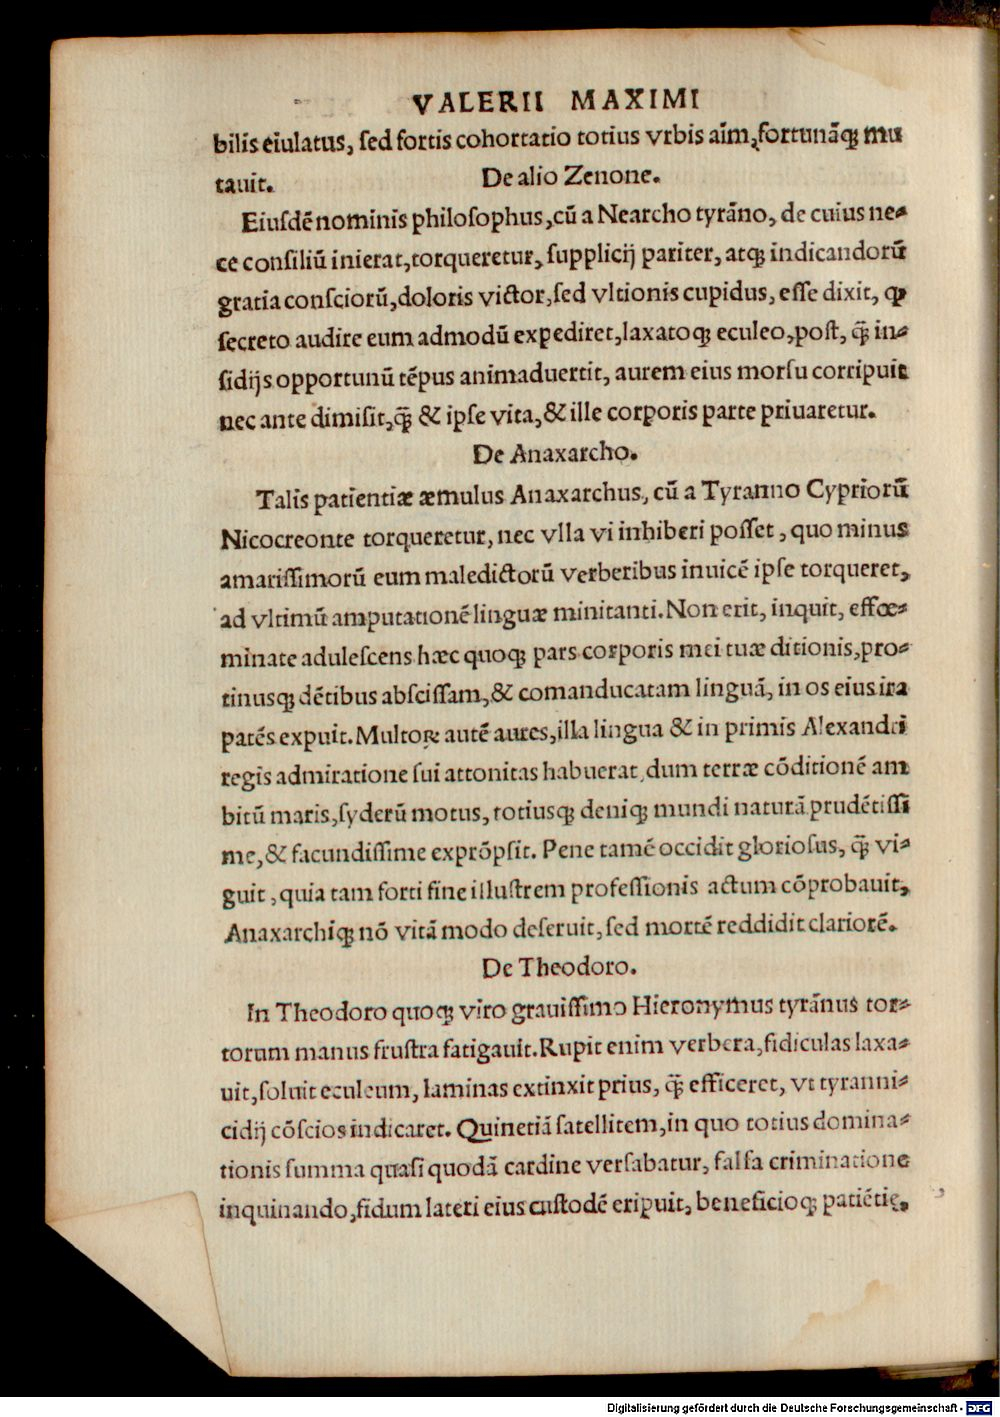 VALERII MAXIMI
bilis eiulatus, sed fortis cohortatio totius vrbis aĩm, fortunãq́; mu
tauit. De alio Zenone.
Eiusdẽ nominis philosophus, cũ a Nearcho tyrãno, de cuius ne-
ce consiliũ inierat, torqueretur, supplicij pariter, atq; indicandorũ
gratia consciorũ, doloris victor, sed vltionis cupidus, esse dixit, ꝙ
secreto audire eum admodũ expediret, laxatoq; eculeo, post, q̃ in-
sidijs opportunũ tẽpus animaduertit, aurem eius morsu corripuit
nec ante dimisit, q̃ & ipse vita, & ille corporis parte priuaretur.
De Anaxarcho.
Talis patientiæ æmulus Anaxarchus, cũ a Tyranno Cypriorũ
Nicocreonte torqueretur, nec vlla vi inhiberi posset, quo minus
amarissimorũ eum maledictorũ verberibus inuicẽ ipse torqueret,
ad vltimũ amputationẽ linguæ minitanti. Non erit, inquit, effœ-
minate adulescens hæc quoq; pars corporis mei tuæ ditionis, pro-
tinusq; dẽtibus abscissam, & comanducatam linguã, in os eius ira
patẽs expuit. Multoꝝ autẽ aures, illa lingua & in primis Alexandri
regis admiratione sui attonitas habuerat, dum terræ cõditionẽ am
bitũ maris, syderũ motus, totiusq; deniq; mundi naturã prudẽtissi
me, & facundissime exprõpsit. Pene tamẽ occidit gloriosus, q̃ vi-
guit, quia tam forti fine illustrem professionis actum cõprobauit,
Anaxarchiq; nõ vitã modo deseruit, sed mortẽ reddidit clariorẽ.
De Theodoro.
In Theodoro quoq; viro grauissimo Hieronymus tyrãnus tor-
torum manus frustra fatigauit. Rupit enim verbera, fidiculas laxa-
uit, soluit eculeum, laminas extinxit prius, q̃ efficeret, vt tyranni-
cidij cõscios indicaret. Quinetiã satellitem, in quo totius domina-
tionis summa quasi quodã cardine versabatur, falsa criminatione
inquinando, fidum lateri eius custodẽ eripuit, beneficioq; patiẽtię,
Digitalisierung gefördert durch die Deutsche Forschungsgemeinschaft - DFG